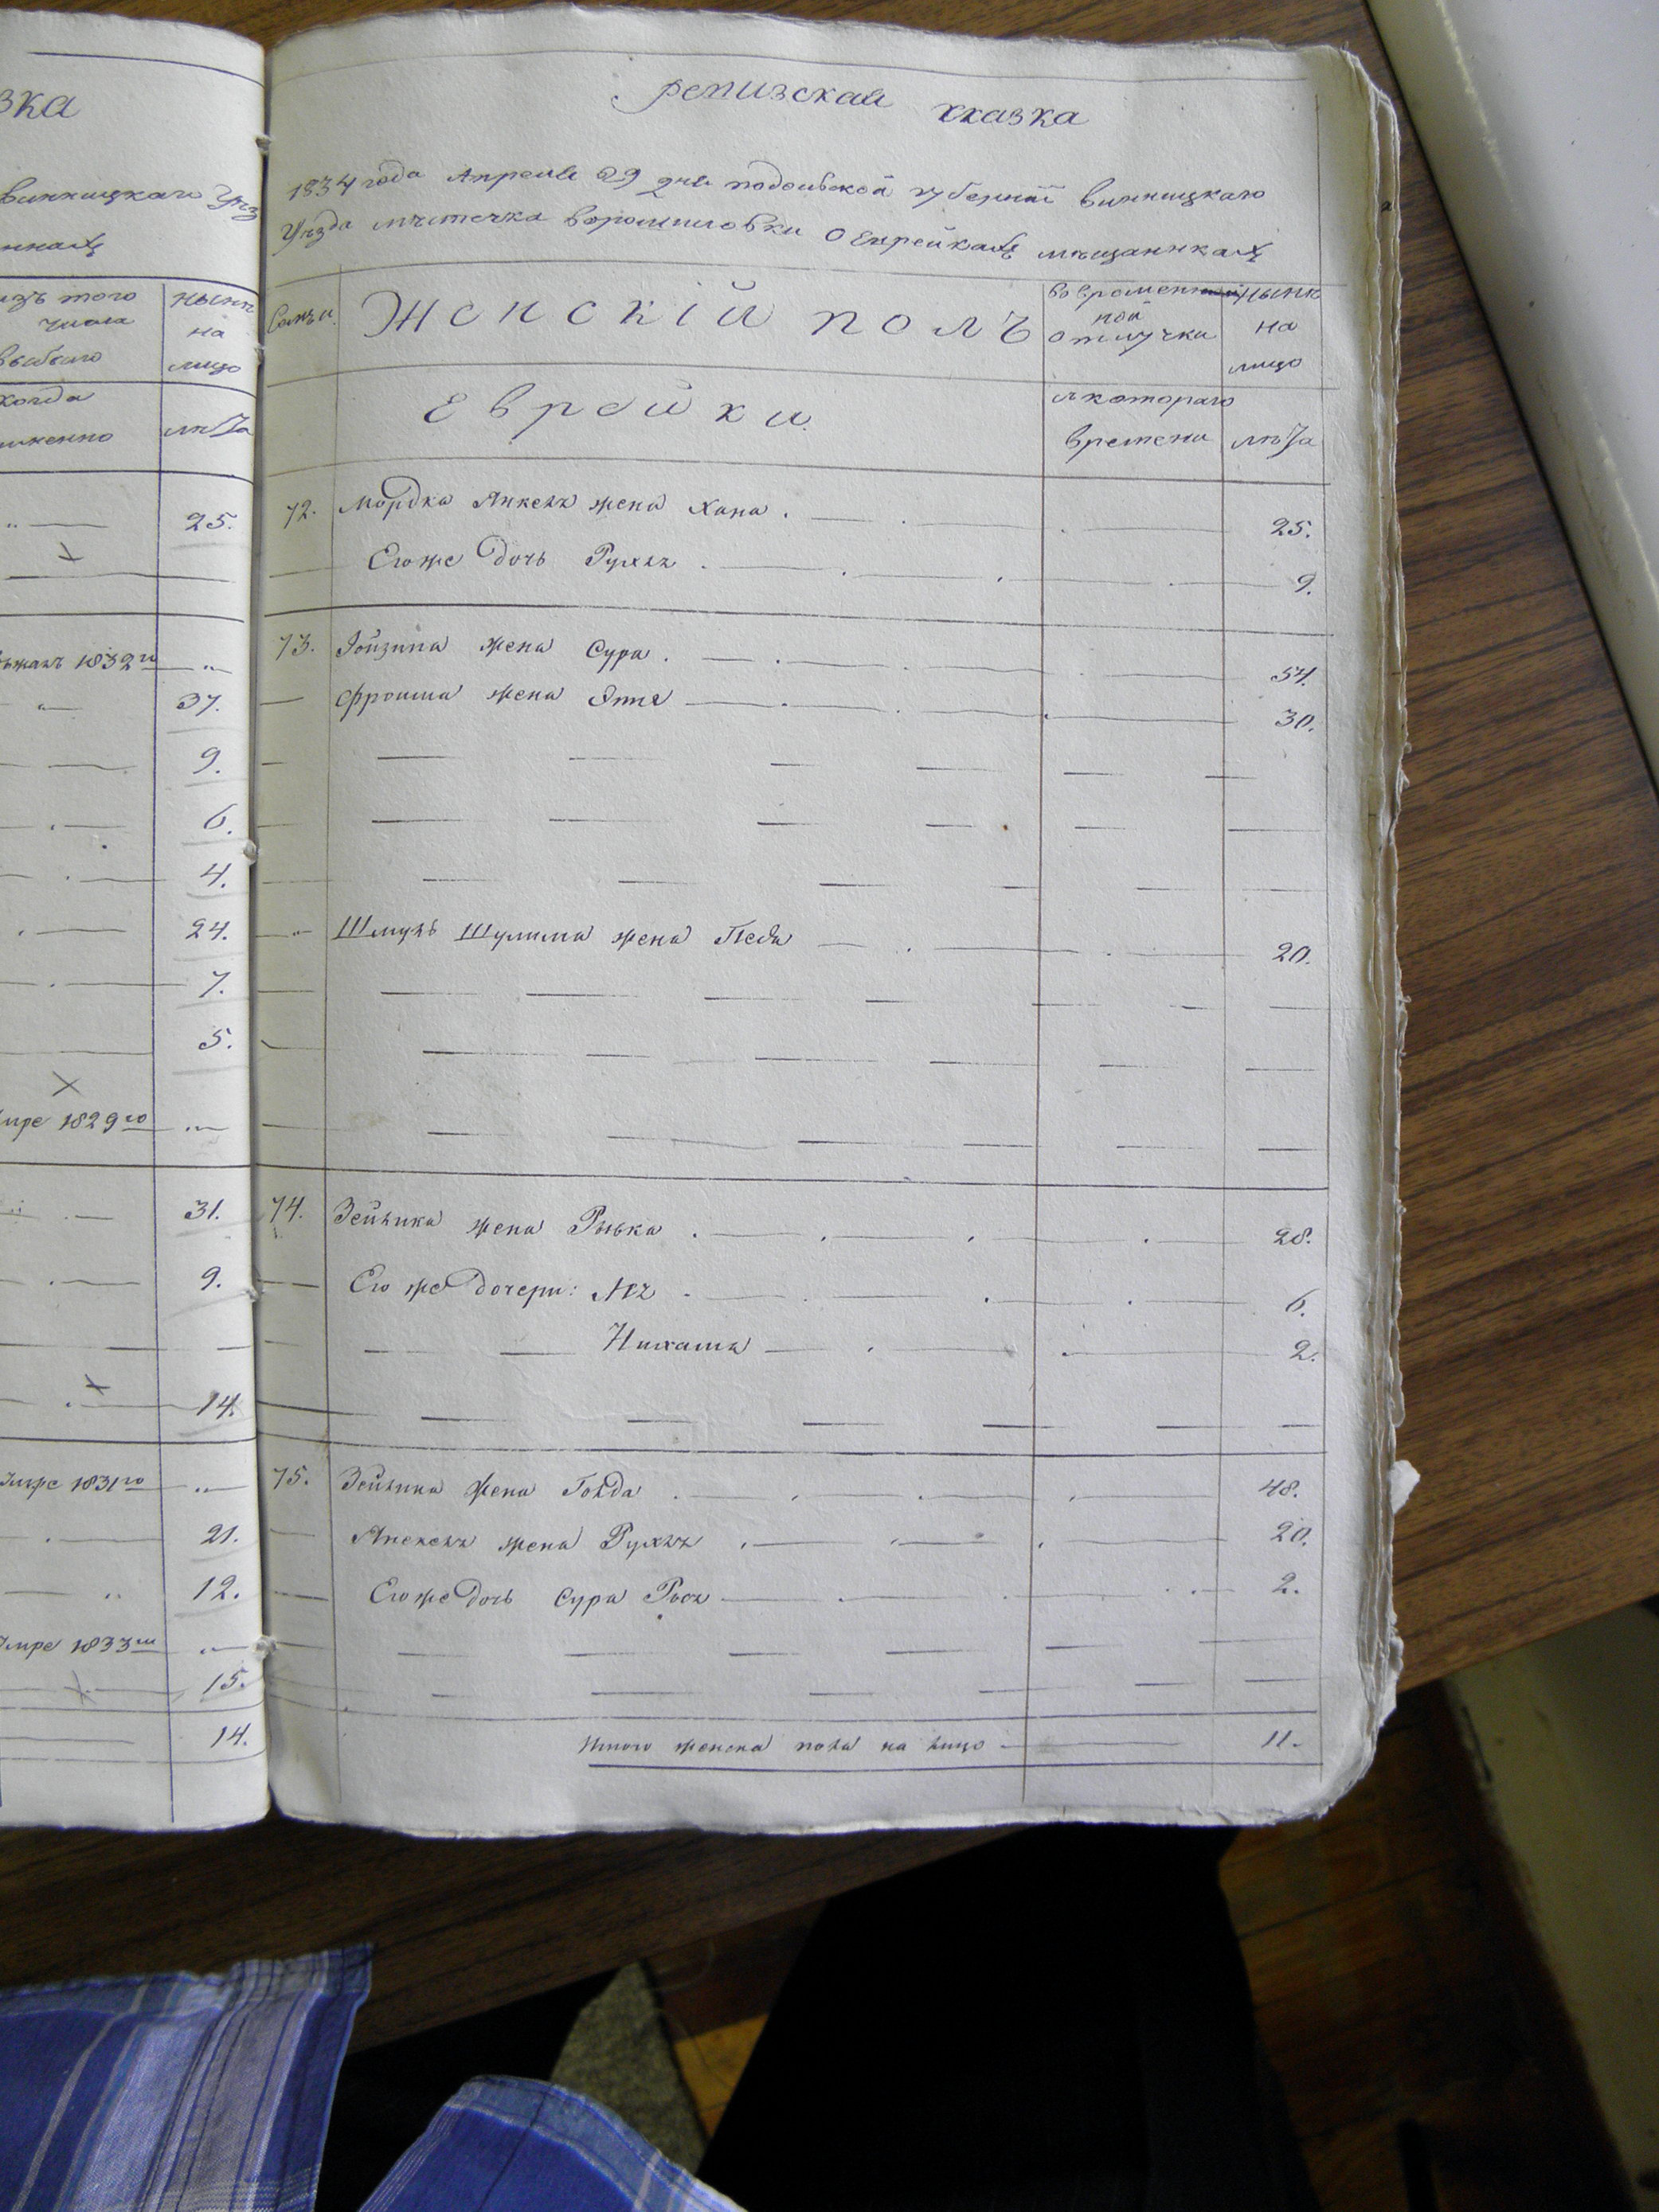 зка
винницкаго Уѣз
изъ того числа
ныне на лицо
когда
лѣта
25.
1832го
37.
9.
6.
4.
24.
7.
5.
умре 1829го
31.
9.
14.
Умре 1831го
21.
12.
Умре 1833го
15.
14.
ревизская сказка
1834 года Апреля 29 дня подольской губернїи винницкаго
Уѣзда мѣстечка Ворошиловки О Еврейкахъ мѣщанкахъ
Семьи
Женскій полъ
во временной отлучке
ныне на лицо
Еврейки
с котораго времени
лѣта
72. Мордка Анкель жена Хана. 25.
Его же дочь Рухль 9.
73. Іойзипа жена Сура. 54.
Фроима жена Этя 30.
Шмуль Шулима жена Песя 20.
74. Зейлика жена Рывка 28.
Его же дочери: 6.
Нихама 2.
75. Зейлика жена Голда 48.
жена Рухль 20.
Его же дочь Сура Рося 2.
Итого женска пола на лицо 11.